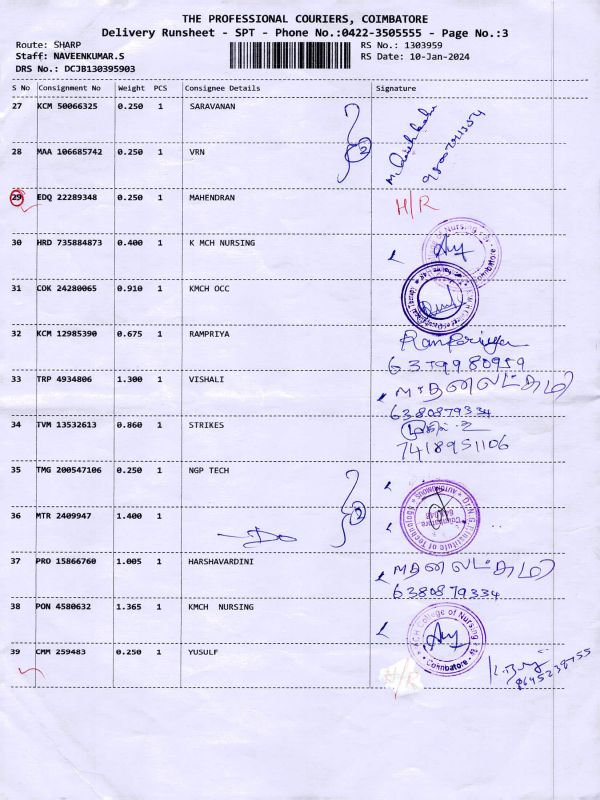 THE PROFESSIONAL COURIERS, COIMBATORE
Delivery Runsheet - SPT - Phone No.:0422-3505555 - Page No.:3
Route: SHARP
RS No.: 1303959
Staff: NAVEENKUMAR.S
RS Date: 10-Jan-2024
DRS No.: DCJB130395903
S No Consignment No Weight PCS Consignee Details Signature
27 KCM 50066325 0.250 1 SARAVANAN
28 MAA 106685742 0.250 1 VRN
2
29 EDQ 22289348 0.250 1 MAHENDRAN H/R
30 HRD 735884873 0.400 1 K MCH NURSING
31 COK 24280065 0.910 1 KMCH OCC
32 KCM 12985390 0.675 1 RAMPRIYA Rampriya
6379980959
33 TRP 4934806 1.300 1 VISHALI
6380879334
34 TVM 13532613 0.860 1 STRIKES
7418951106
35 TMG 200547106 0.250 1 NGP TECH
36 MTR 2409947 1.400 1
2
Do
37 PRO 15866760 1.005 1 HARSHAVARDINI
6380879334
38 PON 4580632 1.365 1 KMCH NURSING
College of Nursing
Coimbatore
39 CMM 259483 0.250 1 YUSULF
H/R